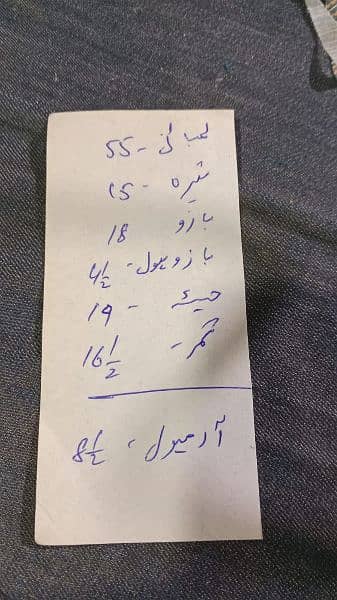 لمبائی - 55
تیرہ - 15
بازو 18
بازو مول - 4½
چیسٹ - 19
کمر - 16½
آرمول - 8½